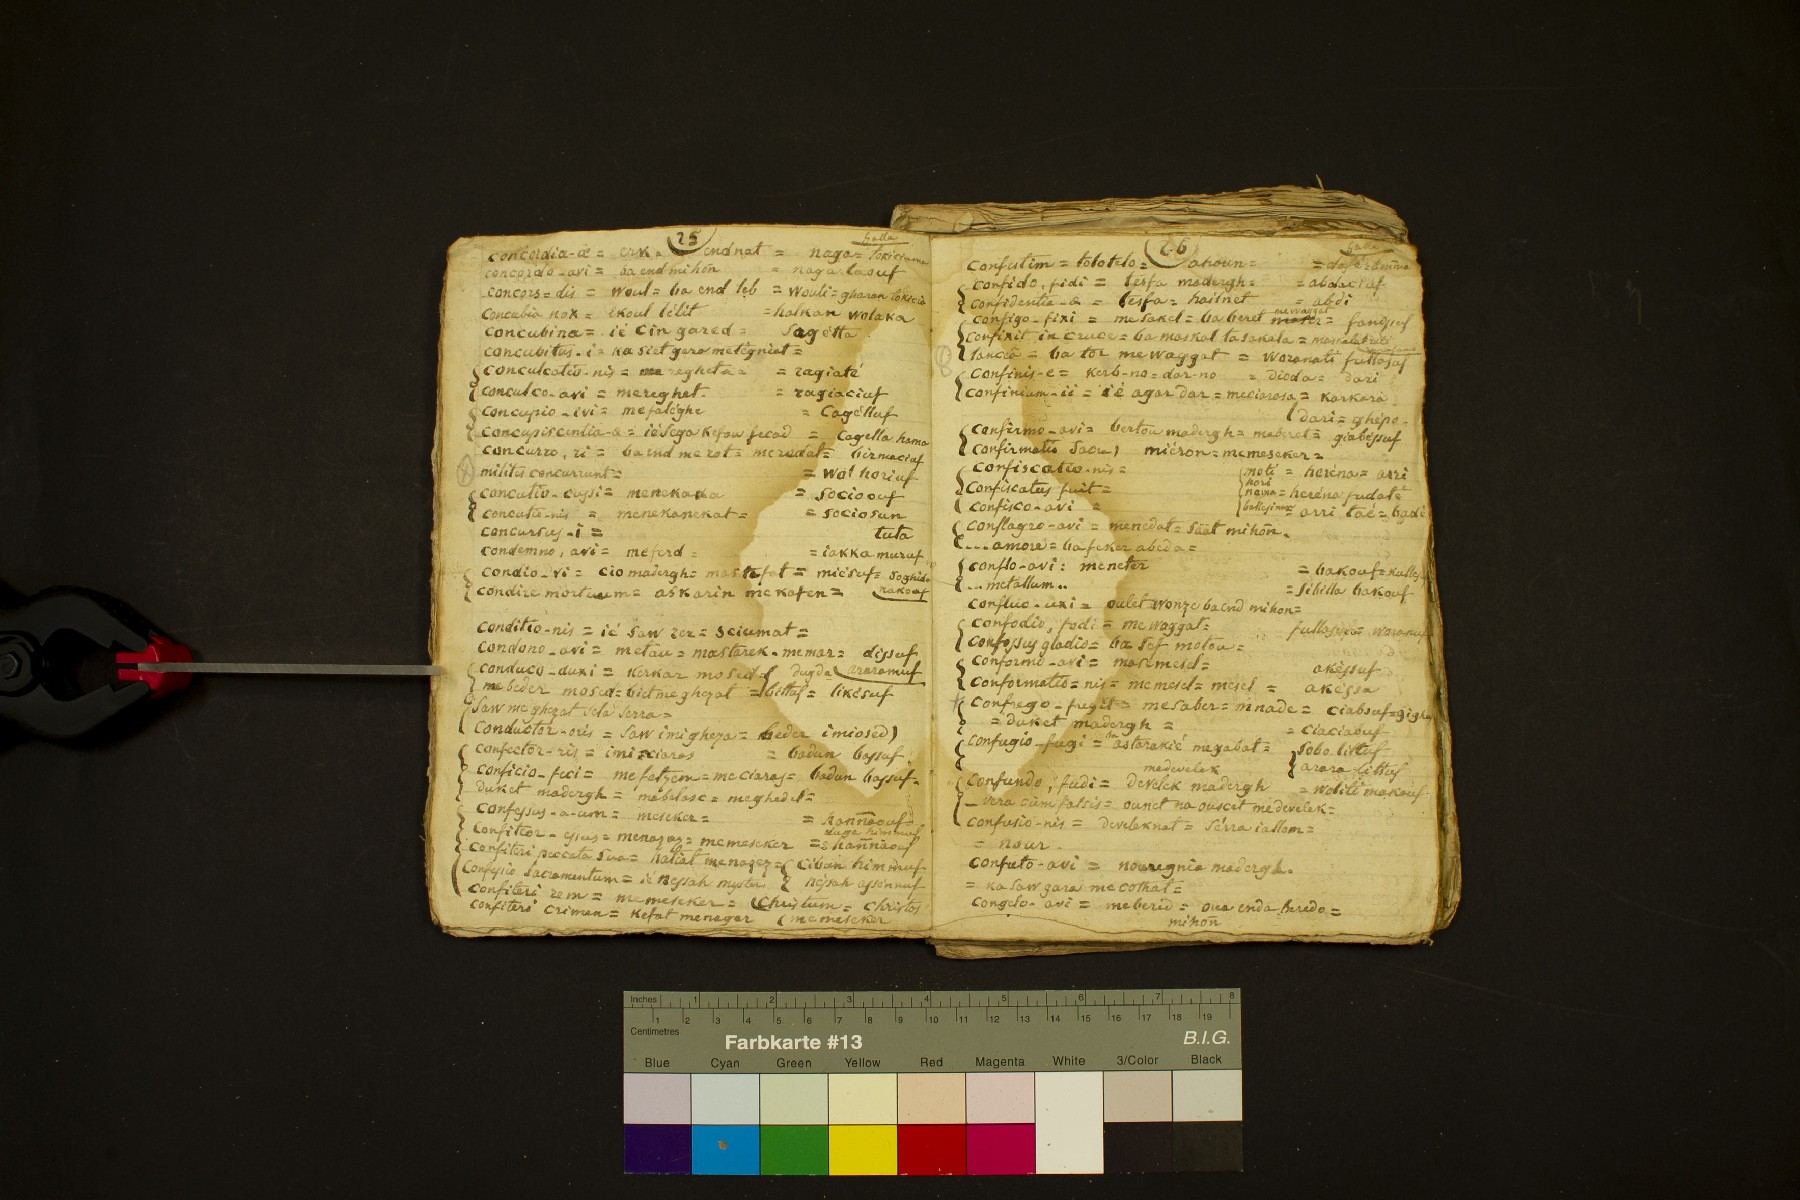 25
Galla
concordia-æ = erk = endnat = naga =
concordo-avi = ba end mihōn = naga taouf
concors-dis = woul = ba end leb = wouli = gharan
concubia nox = ekoul lélit = halkan wolaka
concubina = ié cin gared = sagétta
concubitus-i = ka siet gara metégniat =
conculcatio-nis = meregheta = = ragiaté
conculco-avi = mereghet. = ragiaciuf
concupio-ivi = mefaléghe = cagélluf
concupiscentia-æ = iésega kefou fecad = cagella hama
concurro, ri = ba end me rot = merudat = birmaciuf
milites concurrunt = = wol horiuf
concutio-cussi = menekaka = socioouf
concutio-nis = menekanekat = = sociosun
concursus-i = tuta
condemno, avi = meferd = = iakka muruf
condio-vi = cio madergh = = miésuf = soghida
condire mortuum = askarin mekafen = nakouf
conditio-nis = ié saw zer = sciumat =
condono-avi = metau = mastarek-memar = dissuf
conduco-duxi = kerkar mosed = araramuf
mebeder mosed = biet meghezat = bittuf = likésuf
saw meghezat sela serra =
conductor-oris = saw imigheza = beder imiosed)
confector-ris = imisciaras = badun bassuf.
conficio-feci = mefatzem = meciaras = badun bassuf =
duket madergh = mabelasc = meghedel =
confessus-a-um = meseker = = hannaouf =
confiteor-essus = menazaz = memeseker =
confiteri peccata sua = hatiat menazez = ciban himmuf
confessio sacramentum = ié nessah myster nésah assennuf
confiteri rem = memeseker = Christum = Christos
confiteri crimen = kefat menager (memeseker
26
Galla
confestim = tolotelo = ahoun =
confido, fidi = tesfa madergh = = abdaciuf
confidentia-æ = tesfa = hailnet = abdi
configo-fixi = mesakel = ba beret = fanissuf
mewaggat
confixit in cruce = ba maskal ta sakala =
lancea = ba tor mewaggat = woranati fullasuf
confinis-e = kerb-no = dar-no = dioda = dari
confinium-ii = ié agar dar = meciarosa = karkara
dari = ghépo-
confirmo-avi = bertou madergh = meberet = giabéssuf
confirmatio micron = memeseker =
confiscatio-nis = moté = heréna = arri
hori
confiscatus fuit = nama = heréna fudaté
confisco-avi = = arri taé =
conflagro-avi = menedat = saat mihōn.
.... amore = ba feker abeda =
conflo-avi : meneter = bakouf =
... metallum .. = sibilla bakouf
confluo-uxi = oulet wonze ba end mihon =
confodio, fodi = mewaggat =
confossus gladio = ba sef motou =
conformo-avi = masemesel = akéssuf
conformatio-nis = memesel = mesel = akéssa
confrego-fregit = mesaber = mnade = ciabsuf =
= duket madergh = = ciaciaouf
confugio-fugi = astarakié megabat = soba lituf
arara littuf
medevelek
confundo, fudi = develek madergh = woliti makouf
vera cum falsis = ounet na ouscet medevelek =
confusio-nis = develeknat = serra iallom =
= nour.
confuto-avi = nouregnia madergh.
= ka saw gara mecothat =
congelo-avi = meberid = oua enda beredo =
mihōn
Inches 1 2 3 4 5 6 7 8
1 2 3 4 5 6 7 8 9 10 11 12 13 14 15 16 17 18 19
Centimetres
Farbkarte #13
B.I.G.
Blue Cyan Green Yellow Red Magenta White 3/Color Black